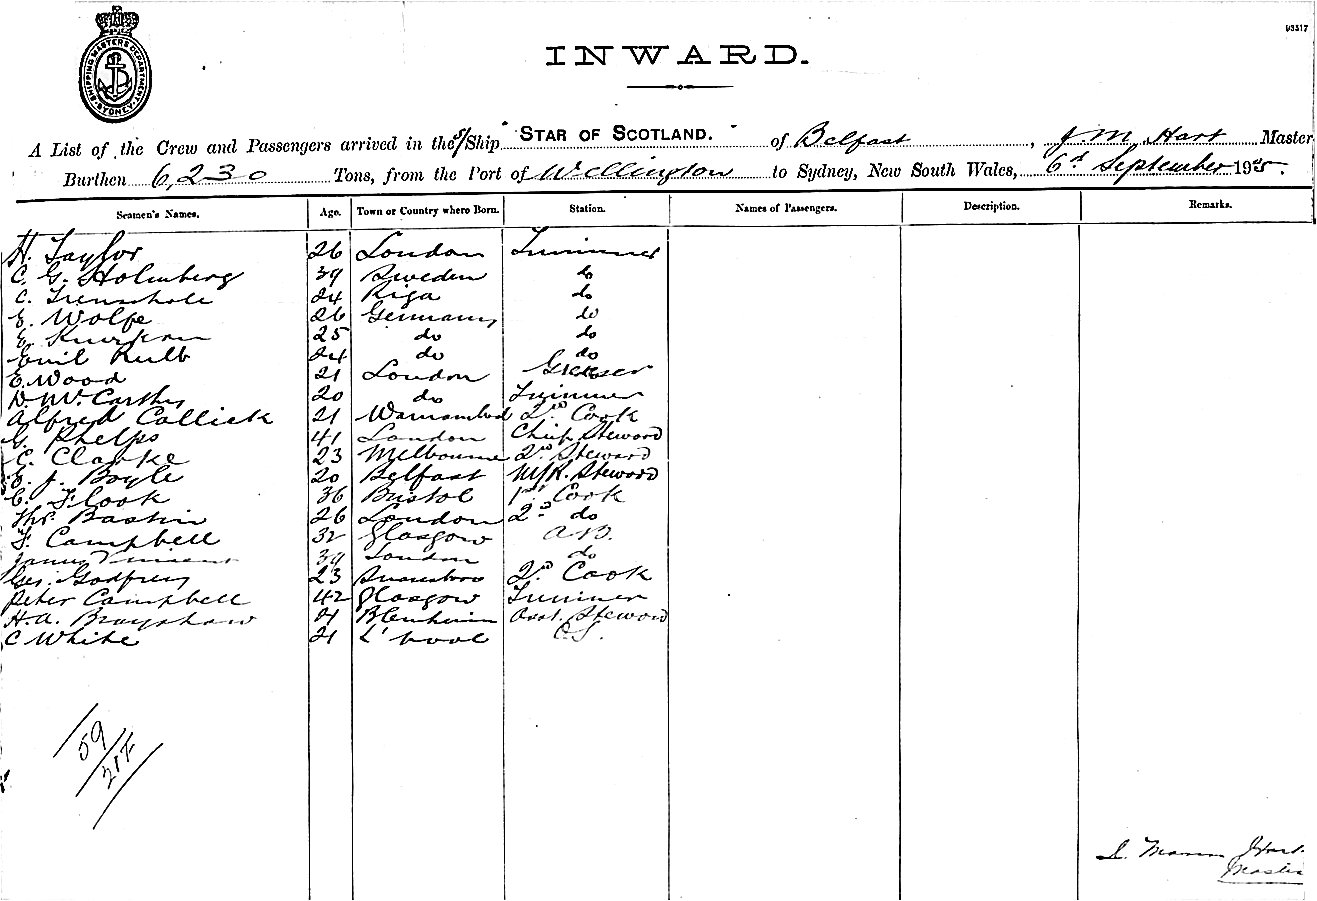 93517
SHIPPING MASTERS DEPARTMENT SYDNEY
INWARD.
A List of the Crew and Passengers arrived in the S/Ship "STAR OF SCOTLAND." of Belfast, J M Hart Master
Burthen 6,230 Tons, from the Port of Wellington to Sydney, New South Wales, 6th September 1905.
Seamen's Names. Age. Town or Country where Born. Station. Names of Passengers. Description. Remarks.
H. Taylor 26 London Trimmer
C. G. Holmberg 39 Sweden do
C. 24 Riga do
E. Wolfe 26 Germany do
E. 25 do do
Emil Kulb 24 do do
E. Wood 21 London Greaser
D. McCarthy 20 do Trimmer
Alfred Collick 21 2nd Cook
G. Phelps 41 London Chief Steward
C. Clarke 23 Melbourne 2nd Steward
E. J. Boyle 20 Belfast M/R. Steward
C. Flook 36 Bristol 1st Cook
Thos. Baskin 26 London 2nd do
F. Campbell 32 Glasgow A.B.
James Vincent 39 London do
Geo. Godfrey 23 2nd Cook
Peter Campbell 42 Glasgow Trimmer
H. A. Brayshaw 21 Blenheim Asst. Steward
C White 21 L'pool O.S.
59
21F
Hart
Master